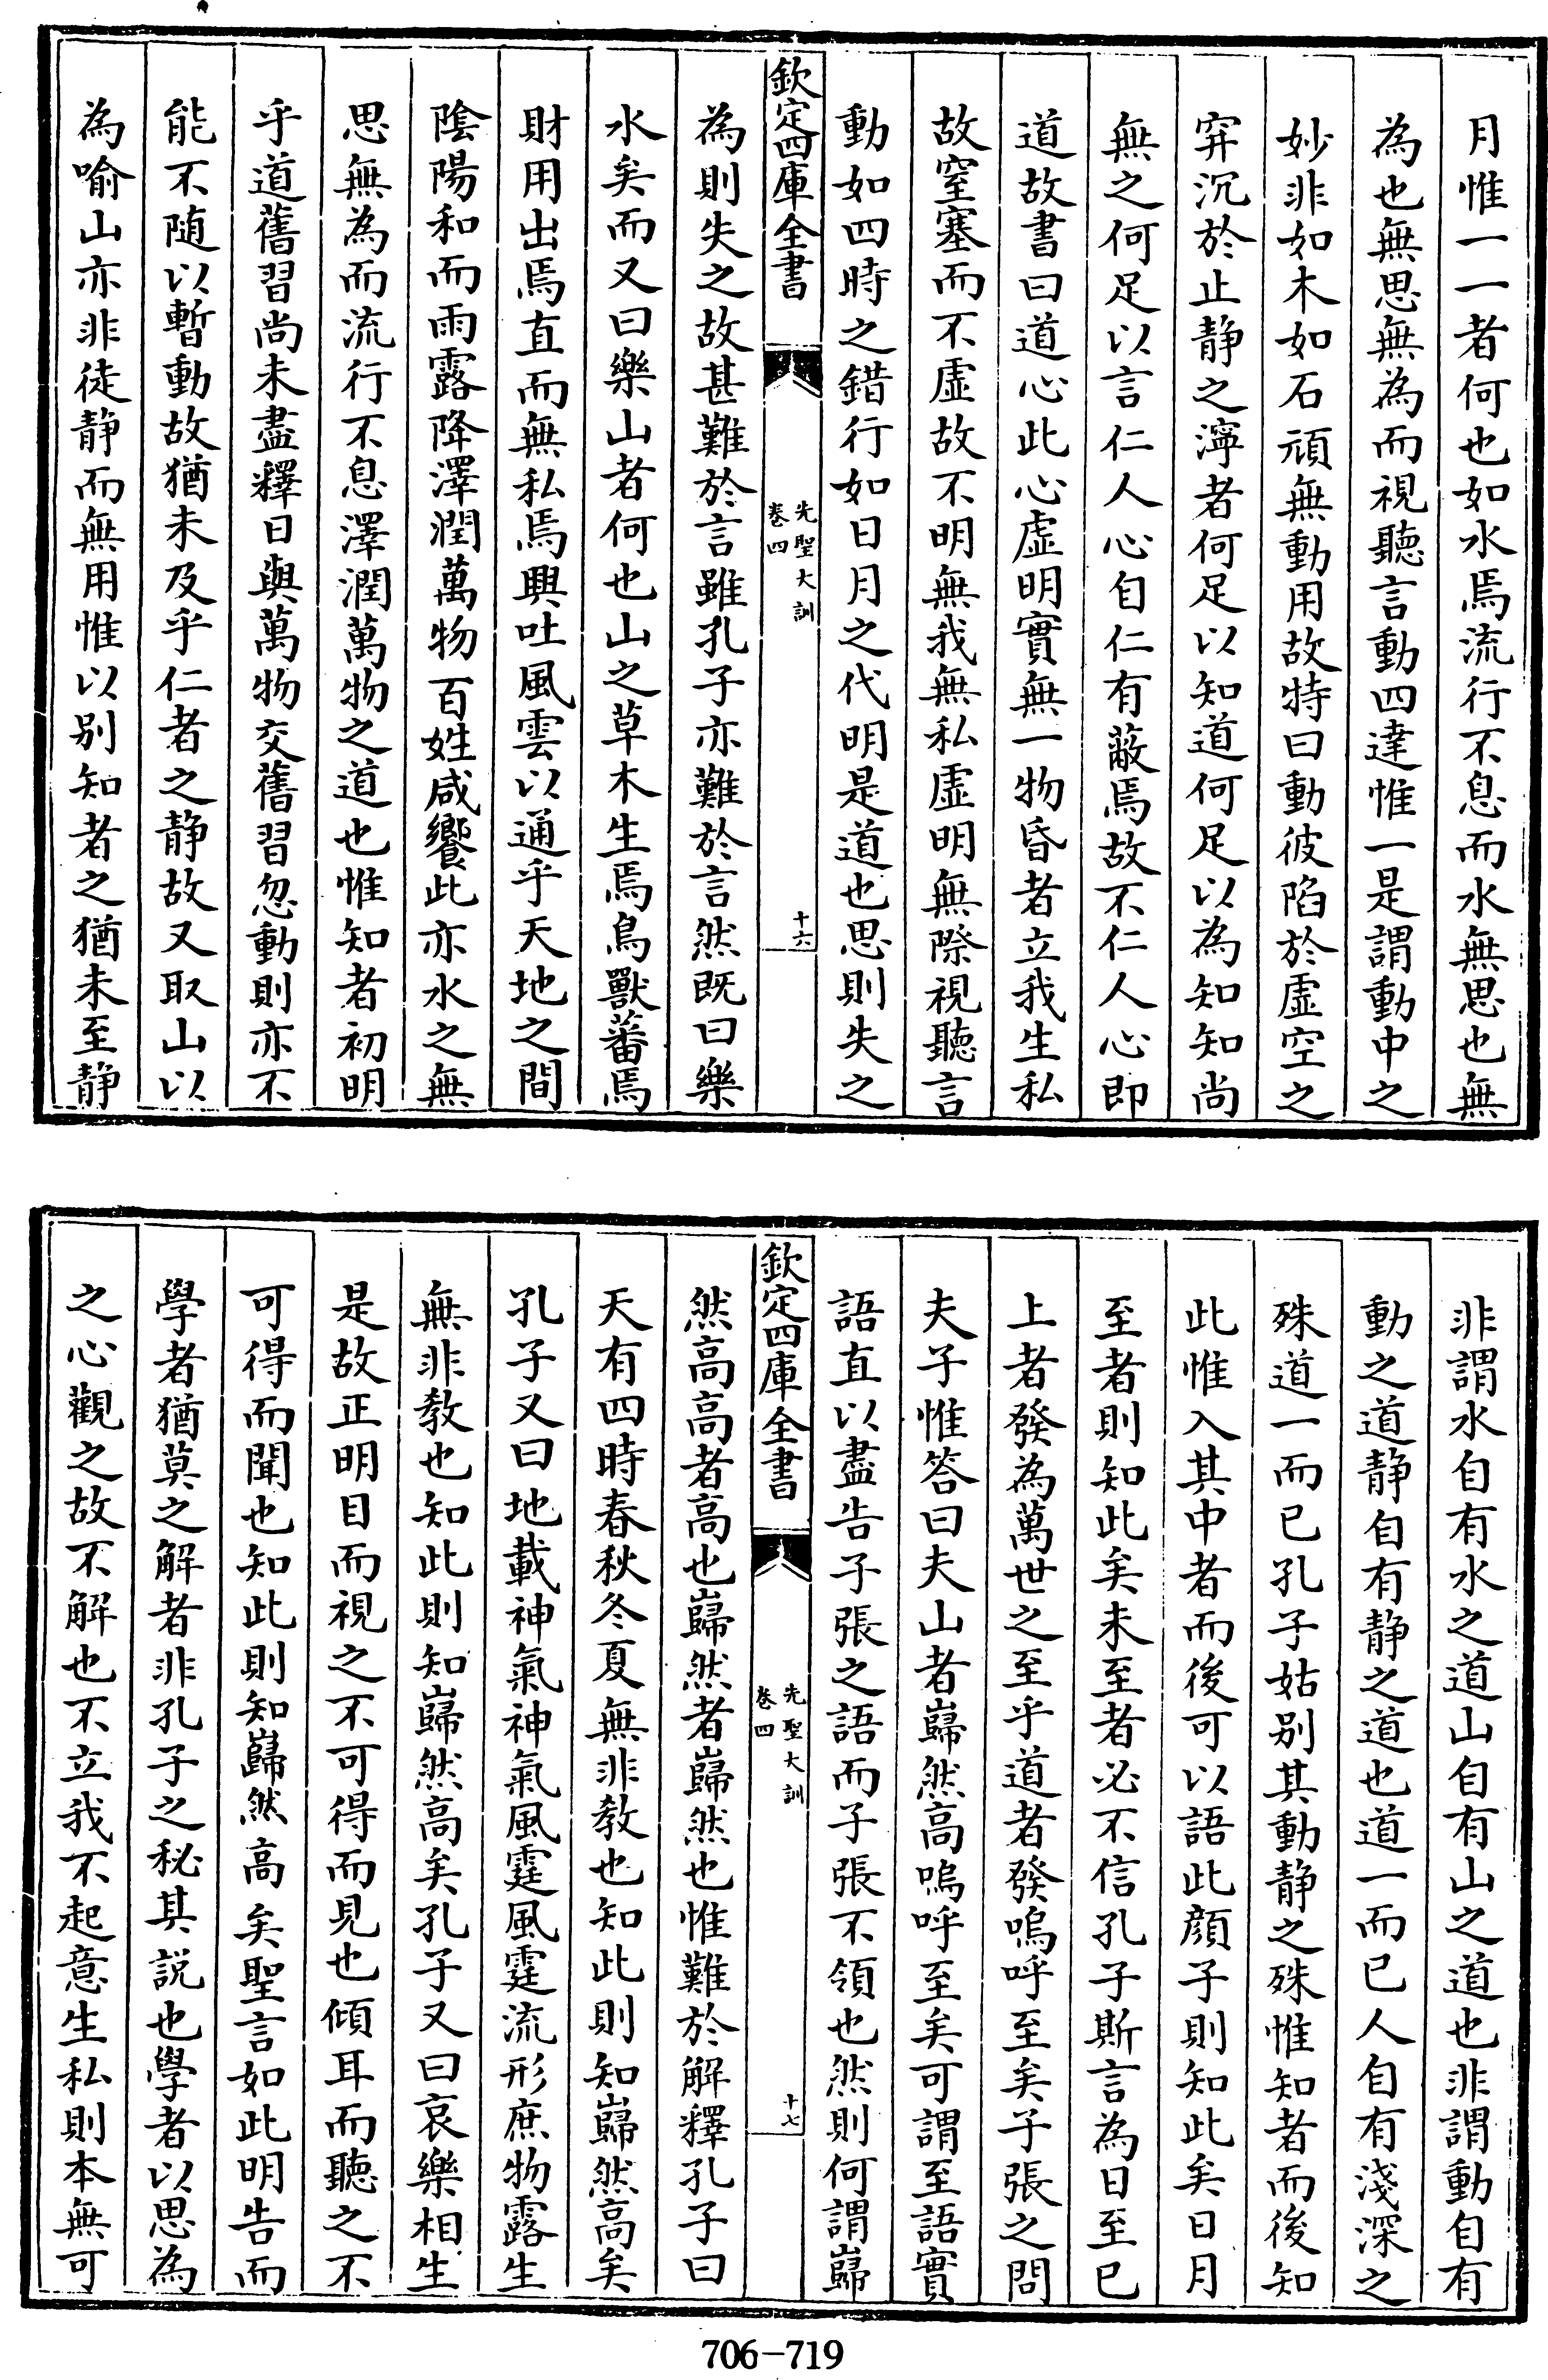 月惟一一者何也如水焉流行不息而水無思也無
為也無思無為而視聽言動四達惟一是謂動中之
妙非如木如石頑無動用故特曰動彼陷於虛空之
穽沉於止静之濘者何足以知道何足以為知知尚
無之何足以言仁人心自仁有蔽焉故不仁人心即
道故書曰道心此心虛明實無一物昏者立我生私
故窒塞而不虛故不明無我無私虛明無際視聽言
動如四時之錯行如日月之代明是道也思則失之
欽定四庫全書
先聖大訓
卷四
十六
為則失之故甚難於言雖孔子亦難於言然既曰樂
水矣而又曰樂山者何也山之草木生焉鳥獸蕃焉
財用出焉直而無私焉興吐風雲以通乎天地之間
隂陽和而雨露降澤潤萬物百姓咸饗此亦水之無
思無為而流行不息澤潤萬物之道也惟知者初明
乎道舊習尚未盡釋日與萬物交舊習忽動則亦不
能不随以暫動故猶未及乎仁者之静故又取山以
為喻山亦非徒静而無用惟以别知者之猶未至静
非謂水自有水之道山自有山之道也非謂動自有
動之道静自有静之道也道一而已人自有淺深之
殊道一而已孔子姑别其動静之殊惟知者而後知
此惟入其中者而後可以語此顔子則知此矣日月
至者則知此矣未至者必不信孔子斯言為日至已
上者發為萬世之至乎道者發嗚呼至矣子張之問
夫子惟答曰夫山者巋然高嗚呼至矣可謂至語實
語直以盡告子張之語而子張不領也然則何謂巋
欽定四庫全書
先聖大訓
卷四
十七
然高高者高也巋然者巋然也惟難於解釋孔子曰
天有四時春秋冬夏無非教也知此則知巋然高矣
孔子又曰地載神氣神氣風霆風霆流形庶物露生
無非教也知此則知巋然高矣孔子又曰哀樂相生
是故正明目而視之不可得而見也傾耳而聽之不
可得而聞也知此則知巋然高矣聖言如此明告而
學者猶莫之解者非孔子之秘其説也學者以思為
之心觀之故不解也不立我不起意生私則本無可
706-719